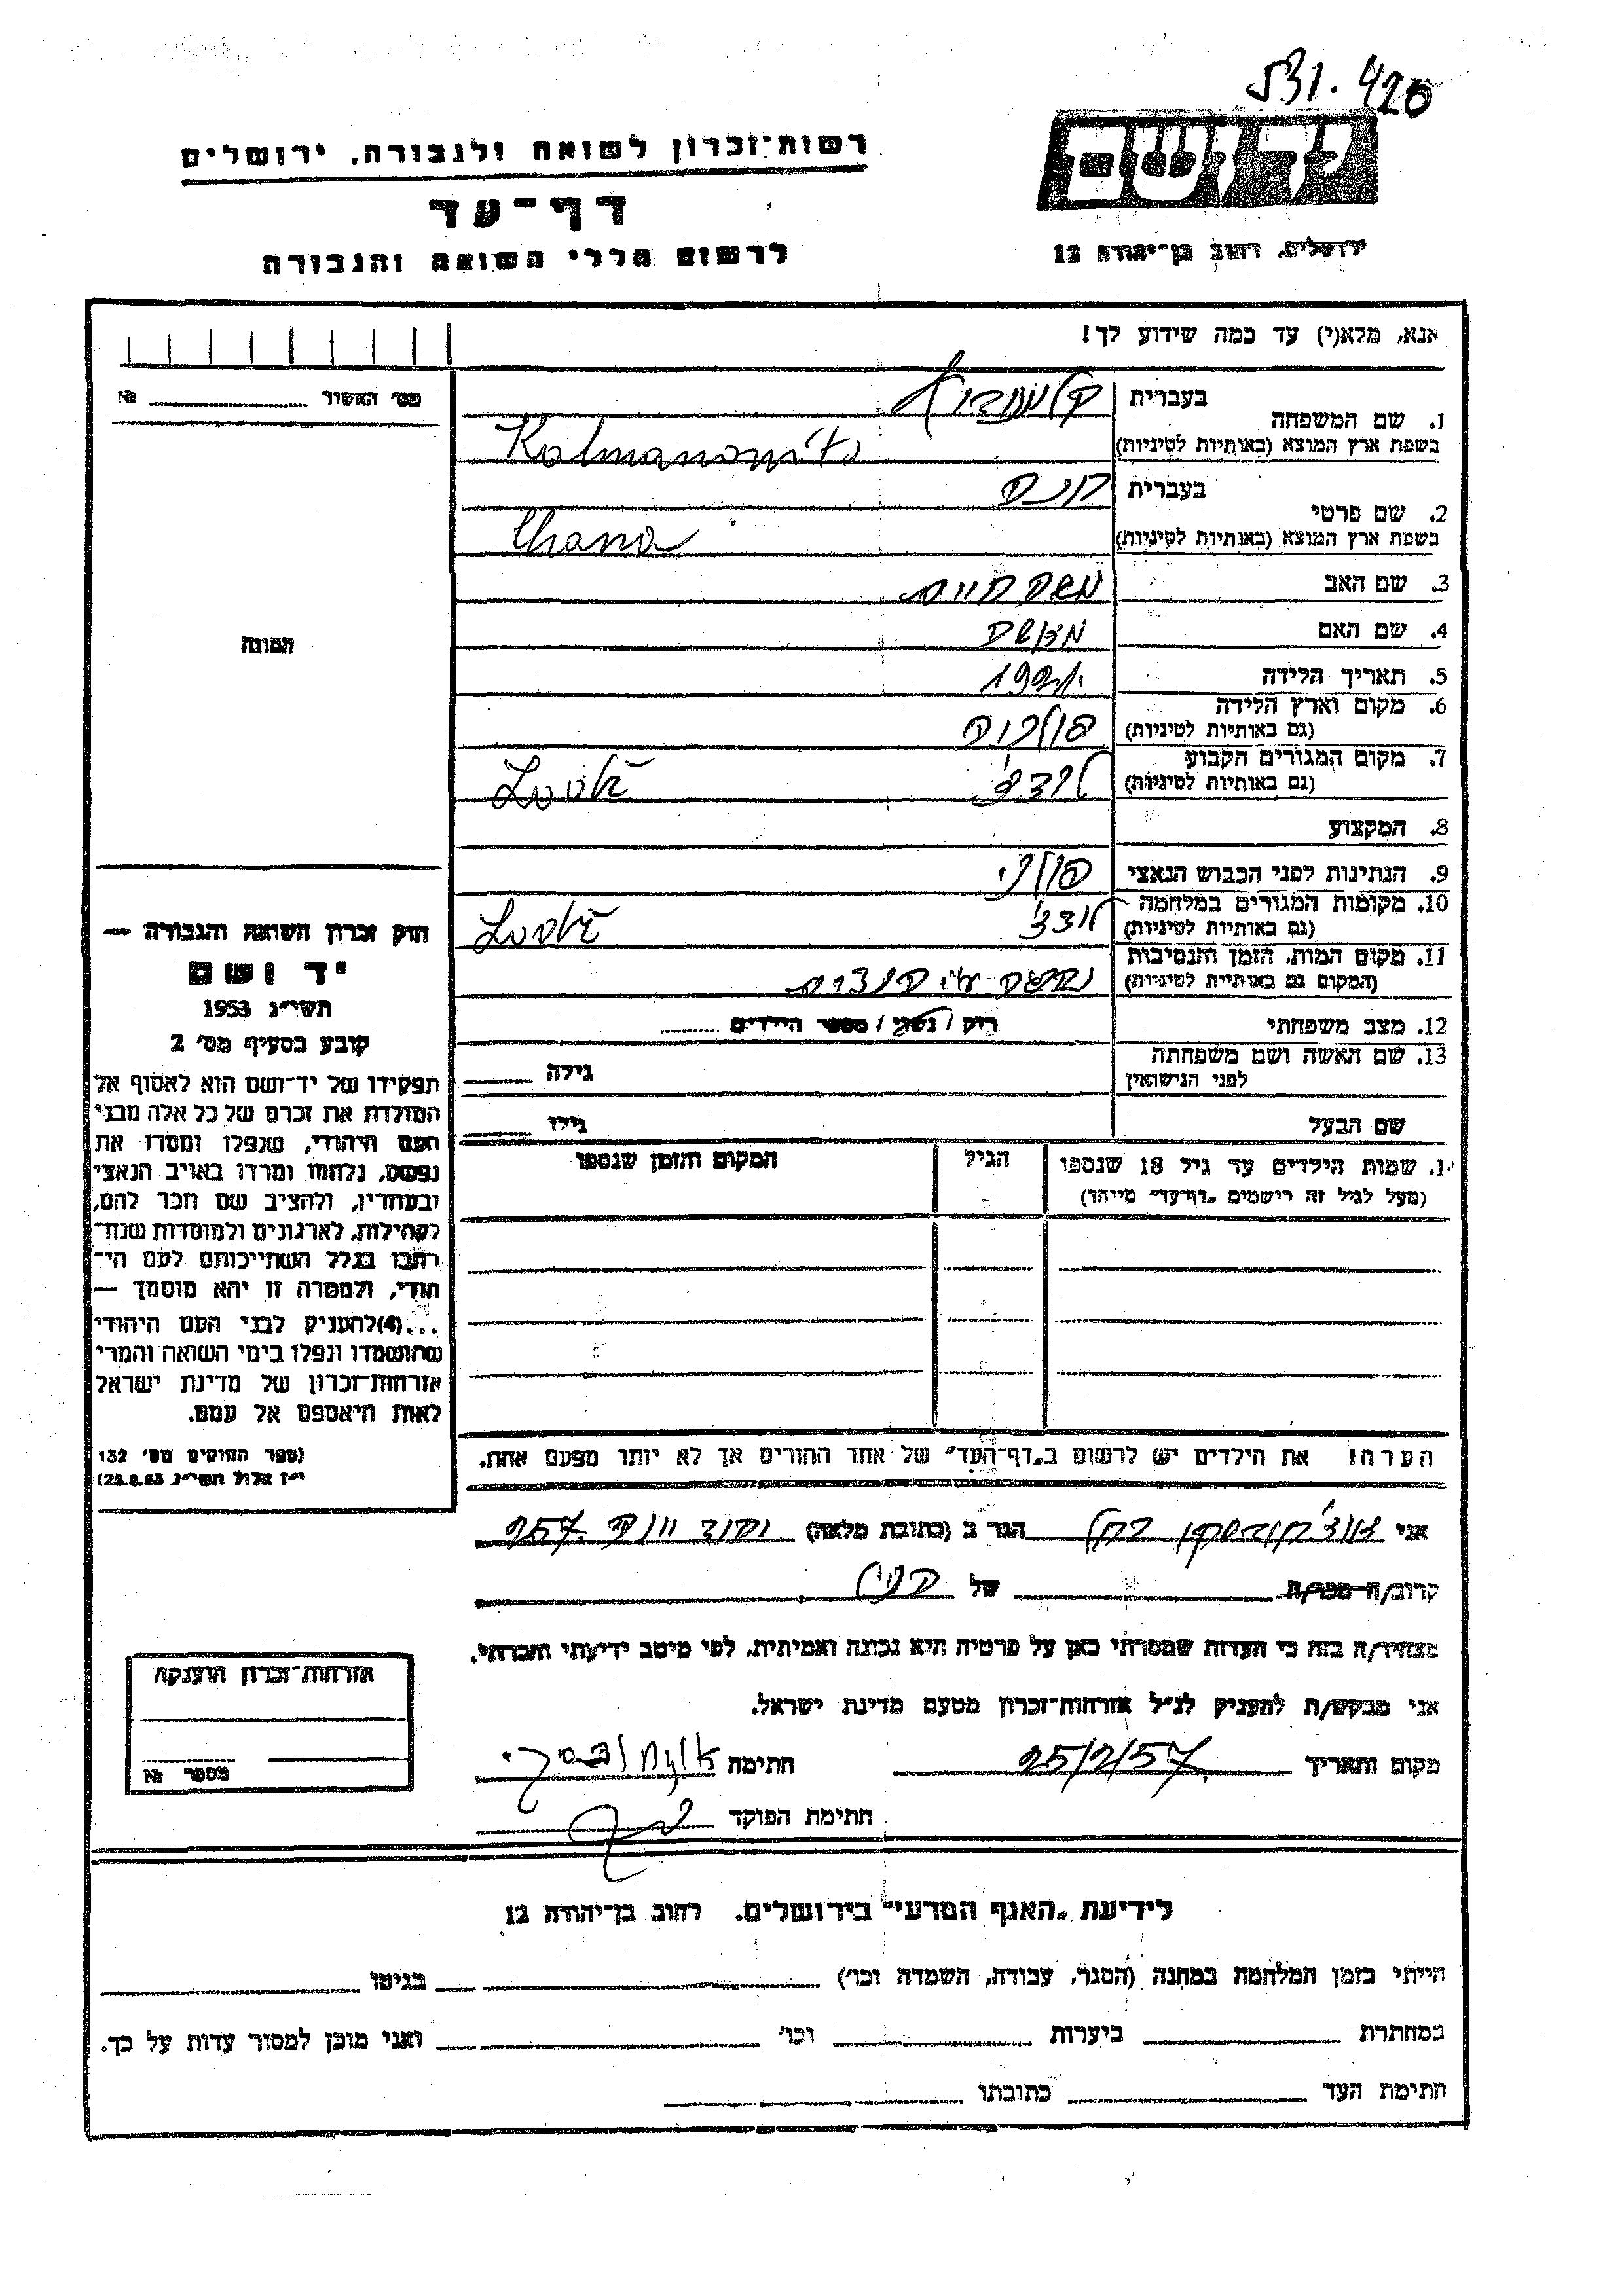 531.420
יד ושם
רשות־זכרון לשואה ולגבורה, ירושלים
דף־עד
ירושלים, רחוב בן־יהודה 12
לרשום חללי השואה והגבורה
אנא, מלא(י) עד כמה שידוע לך!
מס׳ האשור № 
1. שם המשפחה
בעברית
בשפת ארץ המוצא (באותיות לטיניות) Kalmanowitz
2. שם פרטי
בעברית חנה
בשפת ארץ המוצא (באותיות לטיניות) Chana
3. שם האב משה חיים
4. שם האם
5. תאריך הלידה
6. מקום וארץ הלידה
(גם באותיות לטיניות)
7. מקום המגורים הקבוע לודז׳
(גם באותיות לטיניות)
8. המקצוע
9. הנתינות לפני הכבוש הנאצי פולני
10. מקומות המגורים במלחמה לודז׳
(גם באותיות לטיניות)
11. מקום המות, הזמן והנסיבות
(המקום גם באותיות לטיניות)
12. מצב משפחתי רוק / נשוי / מספר הילדים
13. שם האשה ושם משפחתה
לפני הנישואין גילה
שם הבעל גילו
שמות הילדים עד גיל 18 שנספו הגיל המקום והזמן שנספו
(מעל לגיל זה רישמים „דף־עד״ מייחד)
הערה! את הילדים יש לרשום ב„דף־העד״ של אחד ההורים אך לא יותר מפעם אחת.
התמונה
חוק זכרון השואה והגבורה —
יד ושם
תשי״ג 1953
קובע בסעיף מס׳ 2
תפקידו של יד־ושם הוא לאסוף אל
המולדת את זכרם של כל אלה מבני
העם היהודי, שנפלו ומסרו את
נפשם, נלחמו ומרדו באויב הנאצי
ובעוזריו, ולהציב שם וזכר להם,
לקהילות, לארגונים ולמוסדות שנח־
רבו בגלל השתייכותם לעם הי־
הודי, ולמטרה זו יהא מוסמך —
...(4)להעניק לבני העם היהודי
שהושמדו ונפלו בימי השואה והמרי
אזרחות־זכרון של מדינת ישראל
לאות היאספם אל עמם.
(ספר החוקים מס׳ 132
י״ז אלול תשי״ג 28.8.53)
אני הגר ב (כתובת מלאה)
קרוב/ה מכר/ה של
מצהיר/ה בזה כי העדות שמסרתי כאן על פרטיה היא נכונה ואמיתית, לפי מיטב ידיעתי והכרתי.
אני מבקש/ת להעניק לנ״ל אזרחות־זכרון מטעם מדינת ישראל.
מקום ותאריך 25/2/57 חתימה
חתימת הפוקד
אזרחות־זכרון הוענקה
מספר №
לידיעת „האגף המדעי״ בירושלים. רחוב בן־יהודה 12
הייתי בזמן המלחמה במחנה (הסגר, עבודה, השמדה וכו׳) בגיטו
במחתרת ביערות וכו׳ ואני מוכן למסור עדות על כך.
חתימת העד כתובתו